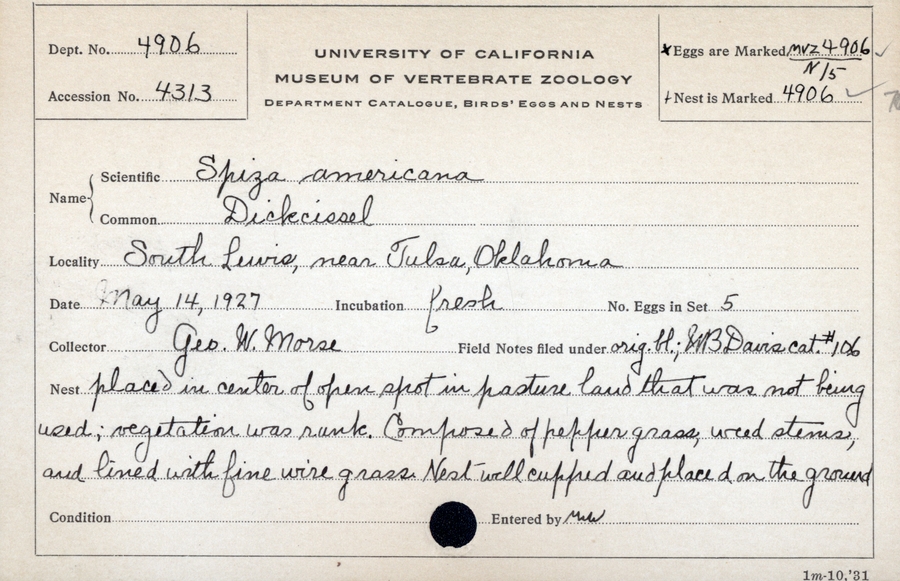 Dept. No. 4906
Accession No. 4313
UNIVERSITY OF CALIFORNIA
MUSEUM OF VERTEBRATE ZOOLOGY
DEPARTMENT CATALOGUE, BIRDS' EGGS AND NESTS
x Eggs are Marked MVZ 4906 ✓
N/5
+ Nest is Marked 4906 ✓
Name { Scientific Spiza americana
Common Dickcissel
Locality South Lewis, near Tulsa, Oklahoma
Date May 14, 1927 Incubation fresh No. Eggs in Set 5
Collector Geo. W. Morse Field Notes filed under orig. bl.; WB Davis cat. #106
Nest placed in center of open spot in pasture land that was not being
used; vegetation was rank. Composed of pepper grass, weed stems,
and lined with fine wire grass. Nest well cupped and placed on the ground
Condition Entered by
1m-10,'31